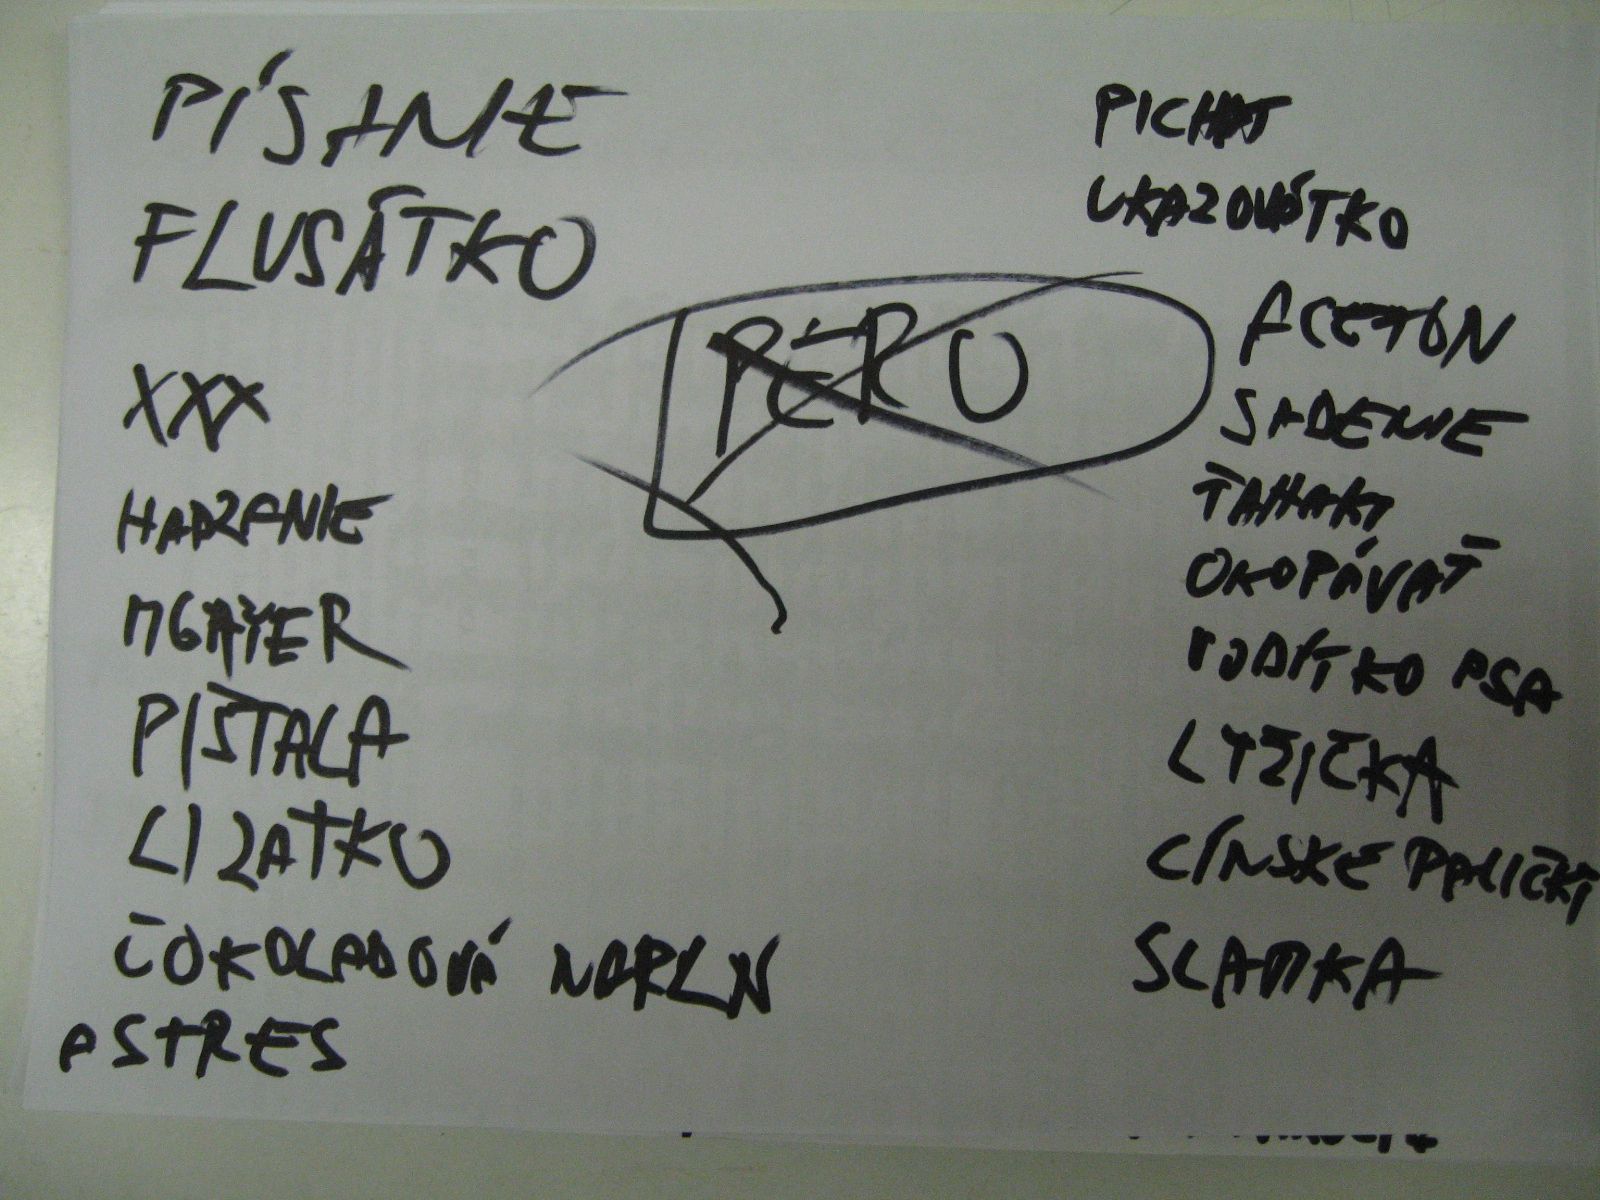 PÍSANIE
FLUSÁTKO
XXX
HADZANIE
MGAYER
PIŠTALA
LIZATKO
ČOKOLADOVÁ
ASTRES
PÉRO
PICHAT
UKAZOVÁTKO
ACETON
SADENIE
ŤAHAKY
OKOPÁVAŤ
VODÍTKO PSA
LYŽIČKA
ČÍNSKE PALIČKY
SLAMKA